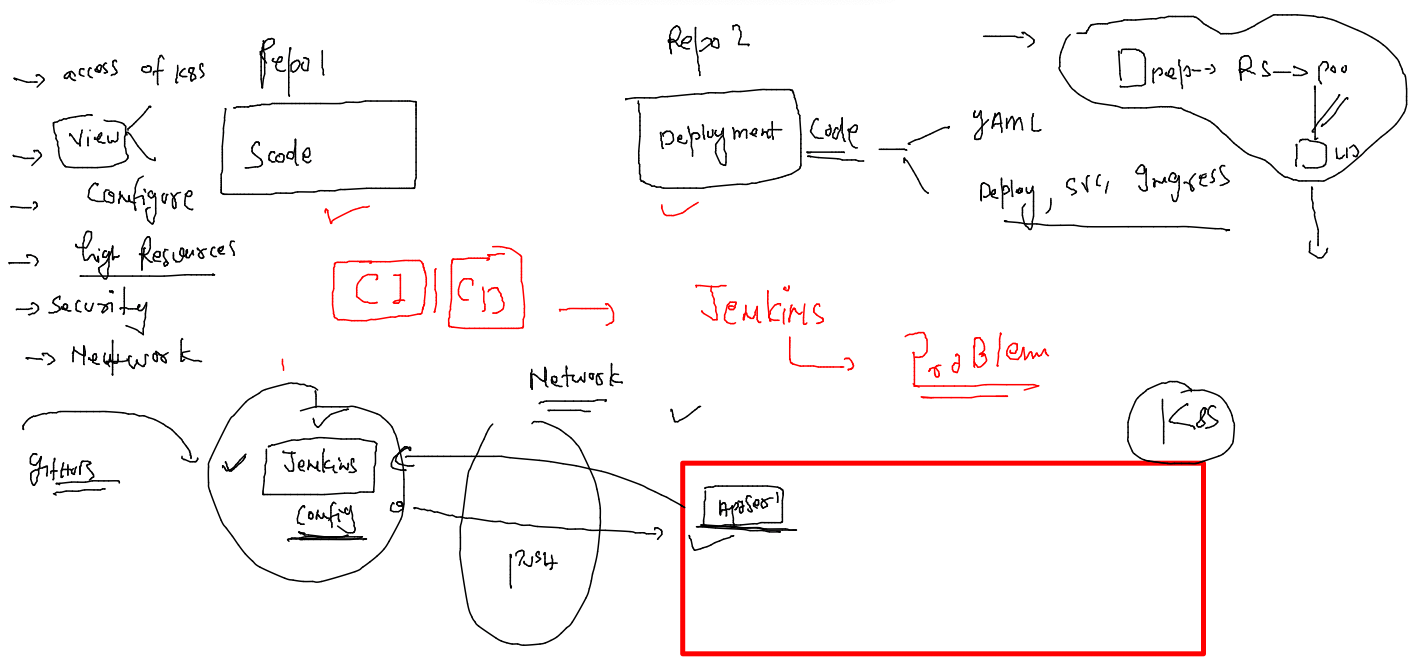 → access of K8s
→ View
→ Configure
→ high Resources
→ Security
→ Network
Repo1
Scode
Repo 2
Deployment Code
YAML
Deploy, SVC, Ingress
→
Dep → RS → Pod
CI | CD → Jenkins
Problem
GitHub
Jenkins
Config
Network
Push
K8S